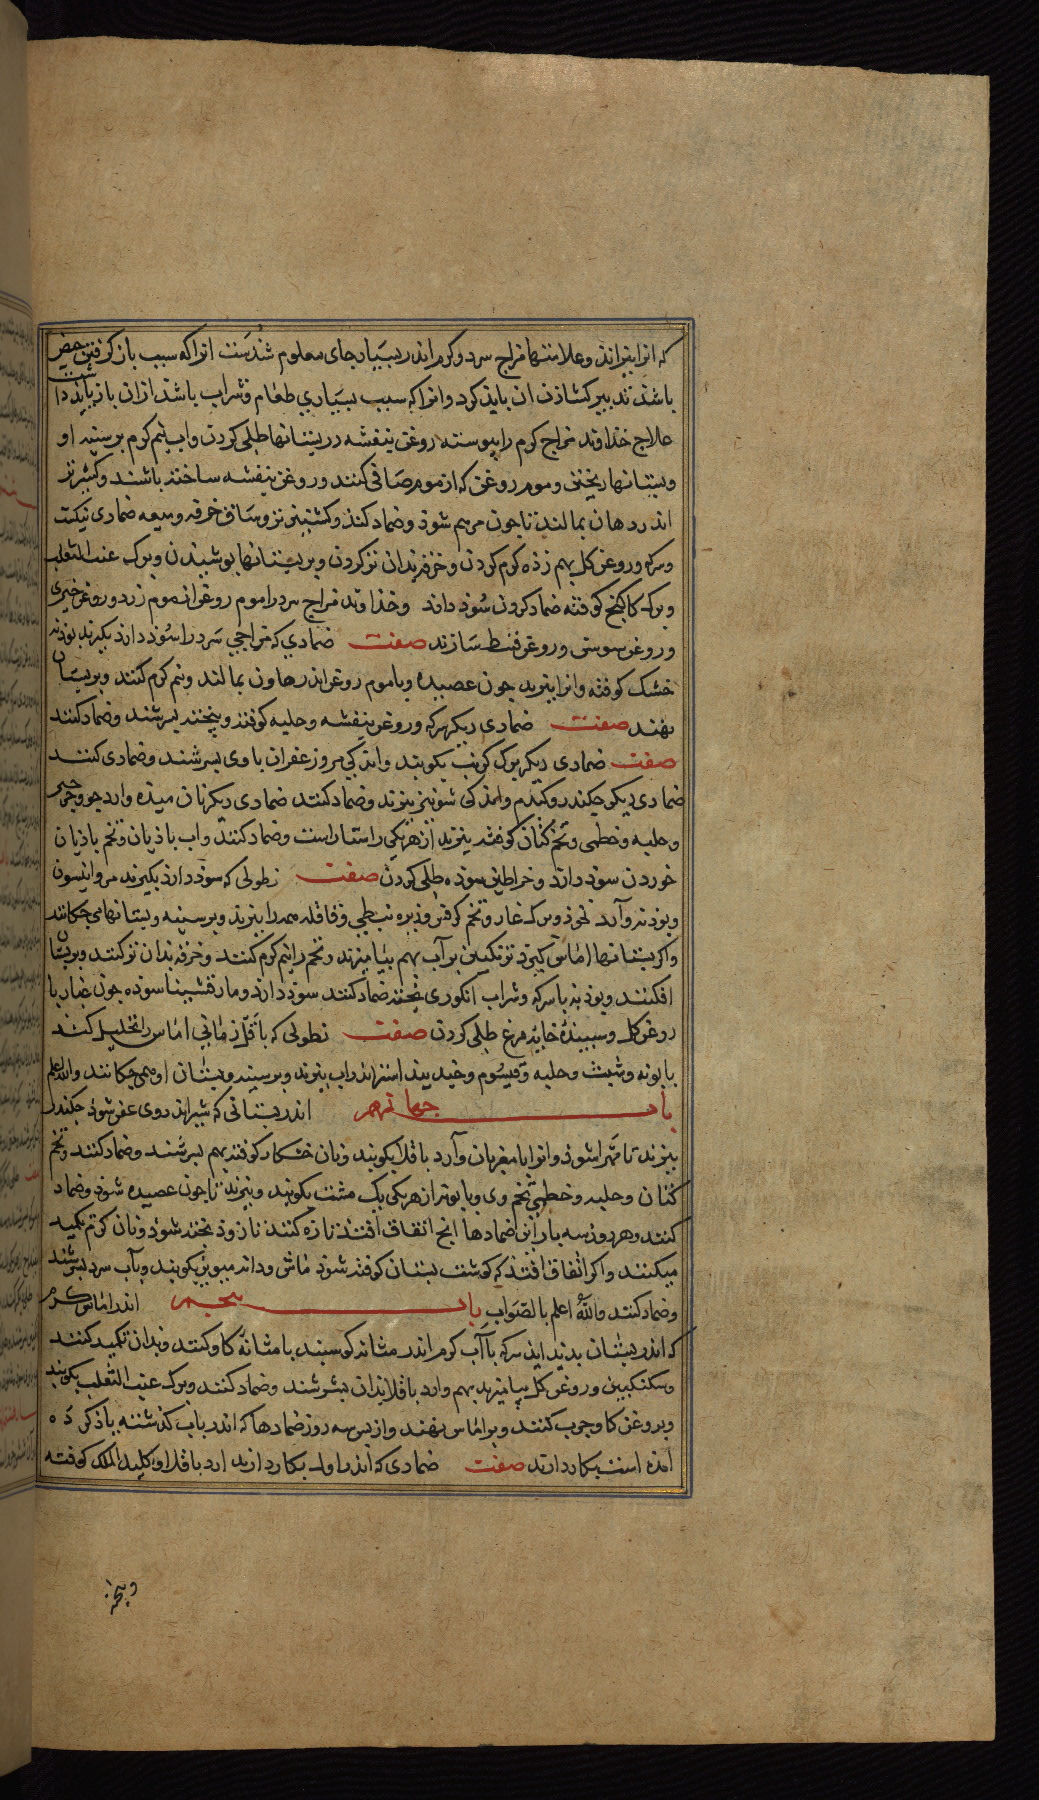 که انرا بپزاند وعلامتهاء مزاج سرد وکرم اندر بسیار جای معلوم شدست انراکه سبب بازکرفتن حیض
باشد تدبیر کشاذن ان باید کرد وانراکه سبب بسیاری طعام وشراب باشد ازان باز باید داشت
علاج خذاوند مزاج کرم را پیوسته روغن بنفشه در پستانها طلی کردن واب نیم کرم بر سینه او
وپستانها ریختن وموم روغن که از موم صافی کنند وروغن بنفشه ساخته باشند وکشنیز تر
اندر هاون بمالند تا جون مرهم شوذ وضماد کنند وکشنیز تر وساق خرفه ومیعه ضمادی نیکست
وسرکه وروغن کل بهم زذه کرم کردن وخرقه بدان تر کردن وبر پستانها پوشیدن وبرک عنب الثعلب
وبرک کاکنج کوفته ضماد کردن سوذ دارد وخذاوند مزاج سرد را موم روغن از موم زرد وروغن خیری
وروغن سوسن وروغن قسط سازند صفت ضمادی که مزاجی سرد را سوذ دارد بکیرند بوذنه
خشک کوفته وانرا بپزند جون عصیده وبا موم روغن اندر هاون بمالند ونیم کرم کنند وبر پستان
نهند صفت ضمادی دیکر سرکه وروغن بنفشه وحلبه کوفته وبیخته بسرشند وضماد کنند
صفت ضمادی دیکر برک کرنب بکوبند واندکی مر وزعفران با وی بسرشند وضمادی کنند
ضمادی دیکر جکندر وکندم واندکی شونیز بپزند وضماد کنند ضمادی دیکر نان میذه وارد جو وجرجیر
وحلبه وخطمی وتخم کتان کوفته بپزند از هر یکی راستاراست وضماد کنند واب باذیان وتخم باذیان
خوردن سوذ دارد وخراطین سوذه طلی کردن صفت نطولی که سوذ دارد بکیرند مر وانیسون
وبوذنه وآرد نخوذ وبرک غار وتخم کرفس وزیره نبطی وقاقله همه را بپزند وبر سینه وپستانها می جکانند
واکر پستانها اماس کیرد ترنکبین بر آب بهم بیامیزند ونیم کرم کنند وخرقه بدان تر کنند وبر پستان
افکنند وبوذنه با سرکه وشراب انکوری پخته ضماد کنند سوذ دارد ومارقشیشا سوذه جون غبار با
روغن کل وسبیذهٔ خایه مرغ طلی کردن صفت نطولی که باقل زمانی اماس را تحلیل کند
بابونه وشبت وحلبه وقیسوم وخید بیذاستر اندر اب بپزند وبر سینه وپستان او همی جکانند والله اعلم
باب جهارم اندر پستانی که شیر اندر وی عفن شوذ جکندر
بپزند تا مهرا شوذ وانرا با مغز نان وآرد باقلا بکوبند ونان خشکار کوفته بهم بسرشند وضماد کنند وتخم
کتان وحلبه وخطمی تخم وی وبابونه از هر یکی یک مشت بکوبند وبپزند تا جون عصیده شوذ وضماد
کنند وهر روز سه بار این ضمادها انج اتفاق افتد تازه کنند تا زوذ پخته شوذ ونان کرم تکمید
میکنند واکر اتفاق افتد که کوشت پستان کوفته شوذ ماش ودانه مویز بکوبند وبآب سرد بسرشند
وضماد کنند والله اعلم بالصواب باب پنجم اندر اماس کرم
که اندر پستان بدید ایذ سرکه با آب کرم اندر مثانه کوسبند با مثانه کاو کنند وبدان تکمید کنند
وسکنکبین وروغن کل بیامیزند بهم وارد باقلا بدان بسرشند وضماد کنند وبرک عنب الثعلب بکوبند
وبروغن کا وجرب کنند وبر اماس نهند واز پس سه روز ضمادها که اندر باب کذشته یاذ کرده
آمذه است بکار دارند صفت ضمادی که اندر اول بکار دارند ارد باقلا واکلیل الملک کوفته
وبیخته